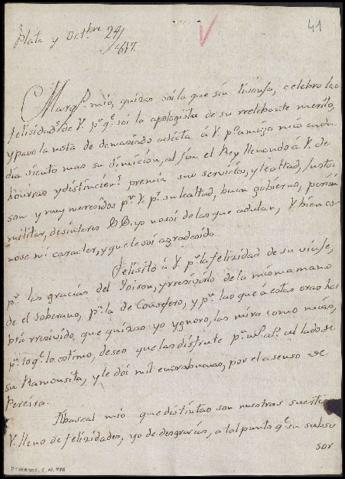 Plata y Octbre 29/
41
Marqs. mio, quizas soi la que sin lisonja, celebro las
felicidads. de V. pr. qe. soi la apologista de su rrelebante merito,
y paso la nota de demasiado adicta á V. pr. amiga mio cada
dia siento mas su dimicion, al fin el Rey llenando á V. de
honrras y distincions. premia sus servicios, y lealtad, justas
son y muy merecidas pr. V. pr. su lealtad, buen gobierno,
militar, desinteres yo no soi de las que adulan, V. bien co-
nose mi caracter, y que le soi agradecida.
Felisito á V. pr. la felizidad de su viaje,
pr. las gracias del Toison, y rresivirlo de la misma mano
de el soberano, pr. la de Consejero, y pr. las que á estas oras ha-
brá rresivido, que quizas yo ygnoro, las miro como mias,
pr. lo qe. lo estimo, deseo que las disfrute pr. al lado de
su Ramonsita, y le doi mil enorabuenas, por el asenso de
Pereira.
Abascal mio que distintas son nuestras suertes
V. lleno de felizidades, yo de desgracias, a tal punto qe.
sor